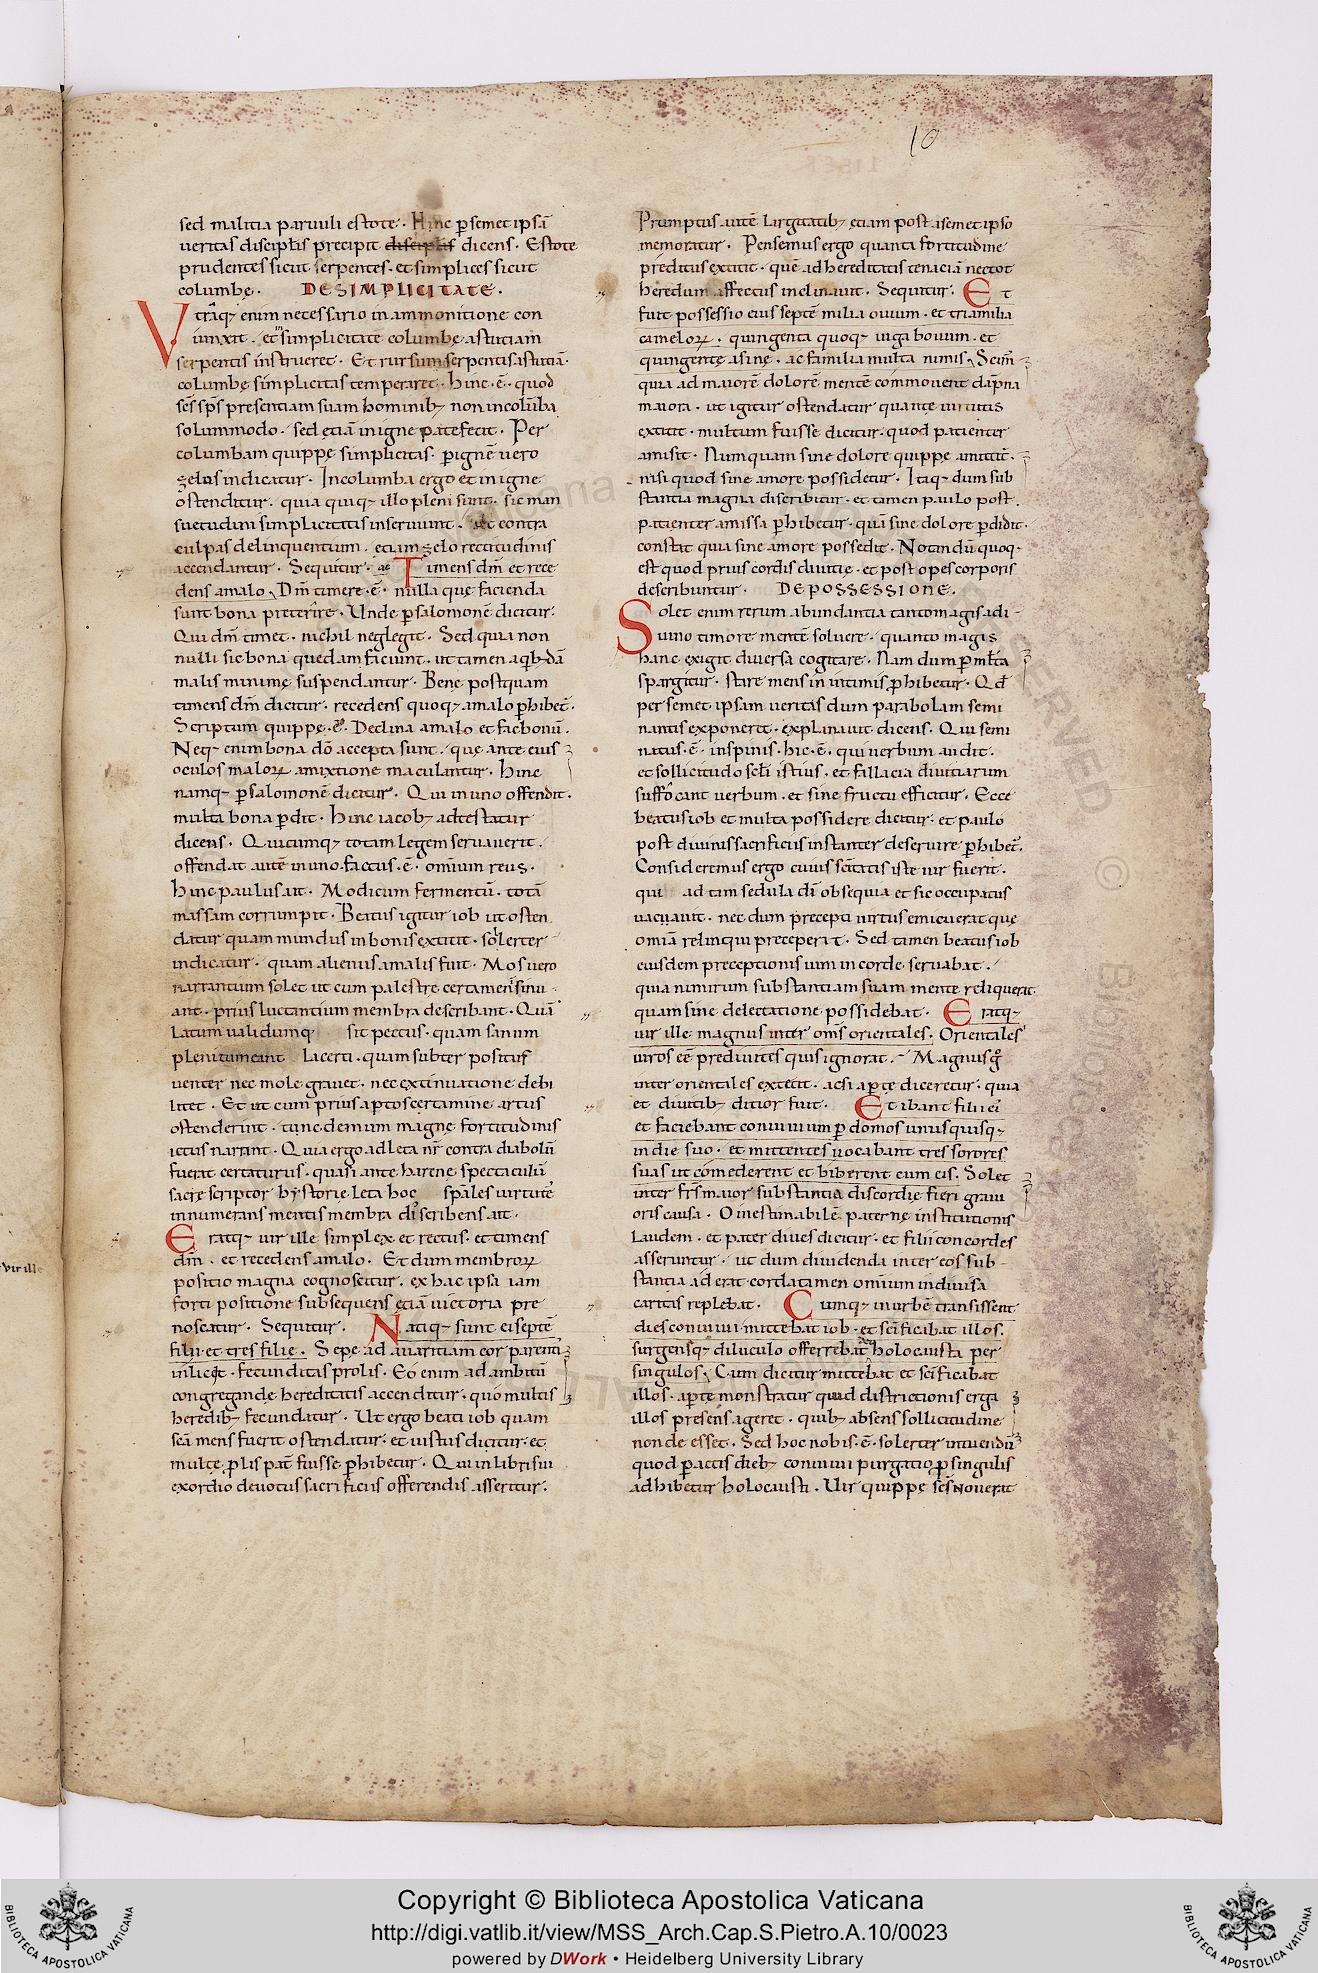 10
sed malitia paruuli estote. Hinc p̱semet ipsā
ueritas discip̄lis precipit discip̄lis dicens. Estote
prudentes sicut serpentes. et simplices sicut
columbę. DE SIMPLICITATE.
Vtrāq; enim necessario in ammonitione con
iunxit. ut simplicitatē columbę astutiam
serpentis instrueret. Et rursum serpentis astutiā
columbę simplicitas temperaret. Hinc .ē. quod
sc̄s sp̄s presentiam suam hominib; non in colūba
solummodo. sed etiā in igne patefecit. Per
columbam quippę simplicitas. p̱ ignē uero
zelus indicatur. In columba ergo et in igne
ostenditur. quia quiq; illo pleni sunt. sic man
suetudini simplicitatis inseruiunt. ut contra
culpas delinquentium. etiam zelo rectitudinis
accendantur. Sequitur. ac Timens dm̄ et rece
dens a malo. Dm̄ timere .ē. nulla quę facienda
sunt bona preterire. Unde p̱ salomonē dicitur:
Qui dm̄ timet. nichil neglegit. Sed quia non
nulli sic bona quedam faciunt. ut tamen a q̱b;dā
malis minimę suspendantur. Bene postquam
timens dm̄ dicitur. recedens quoq; a malo p̱hibet̄.
Scriptum quippę .ē. Declina a malo et fac bonū.
Neq; enim bona dō accepta sunt. quę ante eius
oculos malorꝝ amixtione maculantur. Hinc
namq; p̱ salomonē dicitur. Qui in uno offendit.
multa bona p̱dit. Hinc iacob; adtestatur
dicens. Quicumq; totam legem seruauerit.
offendat autē in uno. factus .ē. omnium reus.
Hinc paulus ait. Modicum fermentū. totā
massam corrumpit. Beatus igitur iob ut osten
datur quam mundus in bonis extitit. solerter
indicatur. quam alienus a malis fuit. Mos uero
narrantium solet ut cum palestrę certamen insinu
ant. prius luctantium membra describant. Quā
latum ualidumq; sit pectus. quam sanum
pleni tumeant lacerti. quam subter positus
uenter nec mole grauet. nec extinuatione debi
litet. Et ut cum prius aptos certamine artus
ostenderint. tunc demum magnę fortitudinis
ictus narrant. Quia ergo adleta nr̄ contra diabolū
fuerat certaturus. quasi ante hirenę spectaculū
sacrę scriptor hystorię leta hoc sp̄ales uirtutē
innumerans mentis membra discribens ait.
Eratq; uir ille simplex et rectus. et timens
dm̄. et recedens a malo. Et dum membrorꝝ
positio magna cognoscitur. ex hac ipsa iam
forti positione subsequens etiā uictoria pre
noscatur. Sequitur. Natiq; sunt ei septē
filii et tres filię. Sepe ad auaritiam cor parenti
inlicet. fecunditas prolis. Eo enim ad ambitū
congregandę hereditatis accenditur. quo multis
heredib; fecundatur. Ut ergo beati iob quam
sc̄a mens fuerit ostendatur. et iustus dicitur. et
multę p̱lis pat̄ fuisse p̱hibetur. Qui in libri sui
exordio deuotus sacrificiis offerendis asseritur.
Prumptus autē largitatib; etiam post a semet ipso
memoratur. Pensemus ergo quanta fortitudine
preditus extitit. quē ad hereditatis tenaciā nec tot
heredum affectus inclinauit. Sequitur. Et
fuit possessio eius septē milia ouium. et tria milia
camelorꝝ. quingenta quoq; iuga bouum. et
quingentę asinę. ac familia multa nimis. Scim̄.
quia ad maiorē dolorē mentē commouent dāpna
maiora. ut igitur ostendatur quantę uirtutis
extitit. multum fuisse dicitur. quod patienter
amisit. Numquam sine dolore quippę amittit̄.
nisi quod sine amore possidetur. Itaq; dum sub
stantia magna discribitur. et tamen paulo post.
patienter amissa p̱hibetur. quā sine dolore p̱didit.
constat quia sine amore possedit. Notandū quoq.
est quod prius cordis diuitię. et post opes corporis
describuntur. DE POSSESSIONE.
Solet enim rerum abundantia tanto magis a di
uino timore mentē soluere. quanto magis
hanc exigit diuersa cogitare. Nam dum p̱ ml̄ta
spargitur. stare mens in intimis p̱hibetur. Qd̄
per semet ipsam ueritas dum parabolam semi
nantis exponeret. explanauit dicens. Qui semi
natus .ē. in spinis. hic .ē. qui uerbum audit.
et sollicitudo sc̄li istius. et fallacia diuitiarum
suffocant uerbum. et sine fructu efficitur. Ecce
beatus iob et multa possidere dicitur. et paulo
post diuinis sacrificiis instanter deseruire p̱hibet̄.
Consideremus ergo cuius sc̄itatis iste uir fuerit.
qui ad tam sedula dī obsequia et sic occupatus
uacauit. nec dum precepti uirtus emicuerat que
omīa relinqui preceperat. Sed tamen beatus iob
eiusdem preceptionis uim in corde seruabat.
quia nimirum substantiam suam mente reliquerat
quam sine delectatione possidebat. Eratq;
uir ille magnus inter om̄s orientales. Orientales
uiros eē prediuites quis ignorat. Magnus g̊
inter orientales extetit. ac si ap̱te diceretur. quia
et diuitib; ditior fuit. Et ibant filii ei
et faciebant conuiuium p̱ domos unusquisq;
in die suo. et mittentes uocabant tres sorores
suas ut comederent et biberent cum eis. Solet
inter fr̄s maior substantia discordię fieri graui
oris causa. O inestimabilē paternę institutionis
laudem. et pater diues dicitur. et filii concordes
asseruntur. ut dum diuidenda inter eos sub
stantia aderat. corda tamen omnium indiuisa
caritas replebat. Cumq; in urbē transissent
dies conuiuii mittebat iob. et sc̄ificabat illos.
surgensq; diluculo offerrebat holocausta per
singulos. Cum dicitur mittebat et sc̄ificabat
illos. ap̱te monstratur quid districtionis erga
illos presens ageret. quib; absens sollicitudine
non deesset. Sed hoc nobis .ē. solerter intuendū
quod p̱actis dieb; conuiuii purgatio p̱ singulis
adhibetur holocausti. Uir quippę sc̄s nouerat
uir ille
Copyright © Biblioteca Apostolica Vaticana
http://digi.vatlib.it/view/MSS_Arch.Cap.S.Pietro.A.10/0023
powered by DWork • Heidelberg University Library
BIBLIOTECA APOSTOLICA VATICANA
BIBLIOTECA APOSTOLICA VATICANA